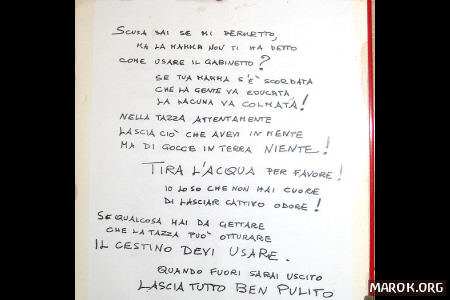 SCUSA SAI SE MI PERMETTO,
MA LA MAMMA NON TI HA DETTO
COME USARE IL GABINETTO?
SE TUA MAMMA S'È SCORDATA
CHE LA GENTE VA EDUCATA,
LA LACUNA VA COLMATA!
NELLA TAZZA ATTENTAMENTE
LASCIA CIÒ CHE AVEVI IN MENTE
MA DI GOCCE IN TERRA NIENTE!
TIRA L'ACQUA PER FAVORE!
IO LO SO CHE NON HAI CUORE
DI LASCIAR CATTIVO ODORE!
SE QUALCOSA HAI DA GETTARE
CHE LA TAZZA PUÒ OTTURARE
IL CESTINO DEVI USARE.
QUANDO FUORI SARAI USCITO
LASCIA TUTTO BEN PULITO
MAROK.ORG